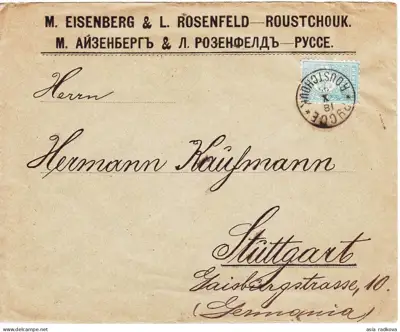 M. EISENBERG & L. ROSENFELD—ROUSTCHOUK.
М. АЙЗЕНБЕРГЪ & Л. РОЗЕНФЕЛДЪ—РУССЕ.
ROUSTCHOUK
X
18
РУСЕ
Herrn
Hermann Kaufmann
Stuttgart
Gaisburgstrasse, 10.
(Germania)
www.delcampe.net
asia radkova